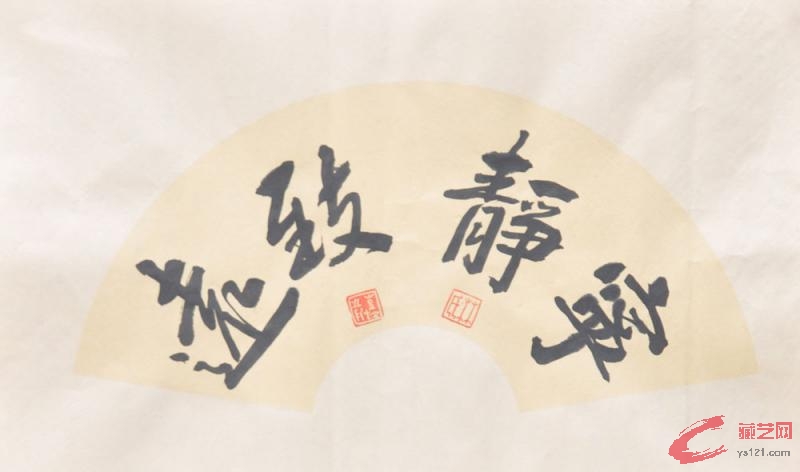 寧靜致遠
藏艺网
ys121.com